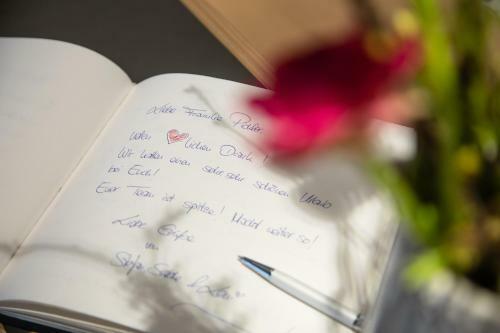 Liebe Familie
vielen ❤lichen Dank!
Wir hatten einen sehr sehr schönen Urlaub
bei Euch!
Euer Team ist spitze! Macht weiter so!
Liebe Grüße
von